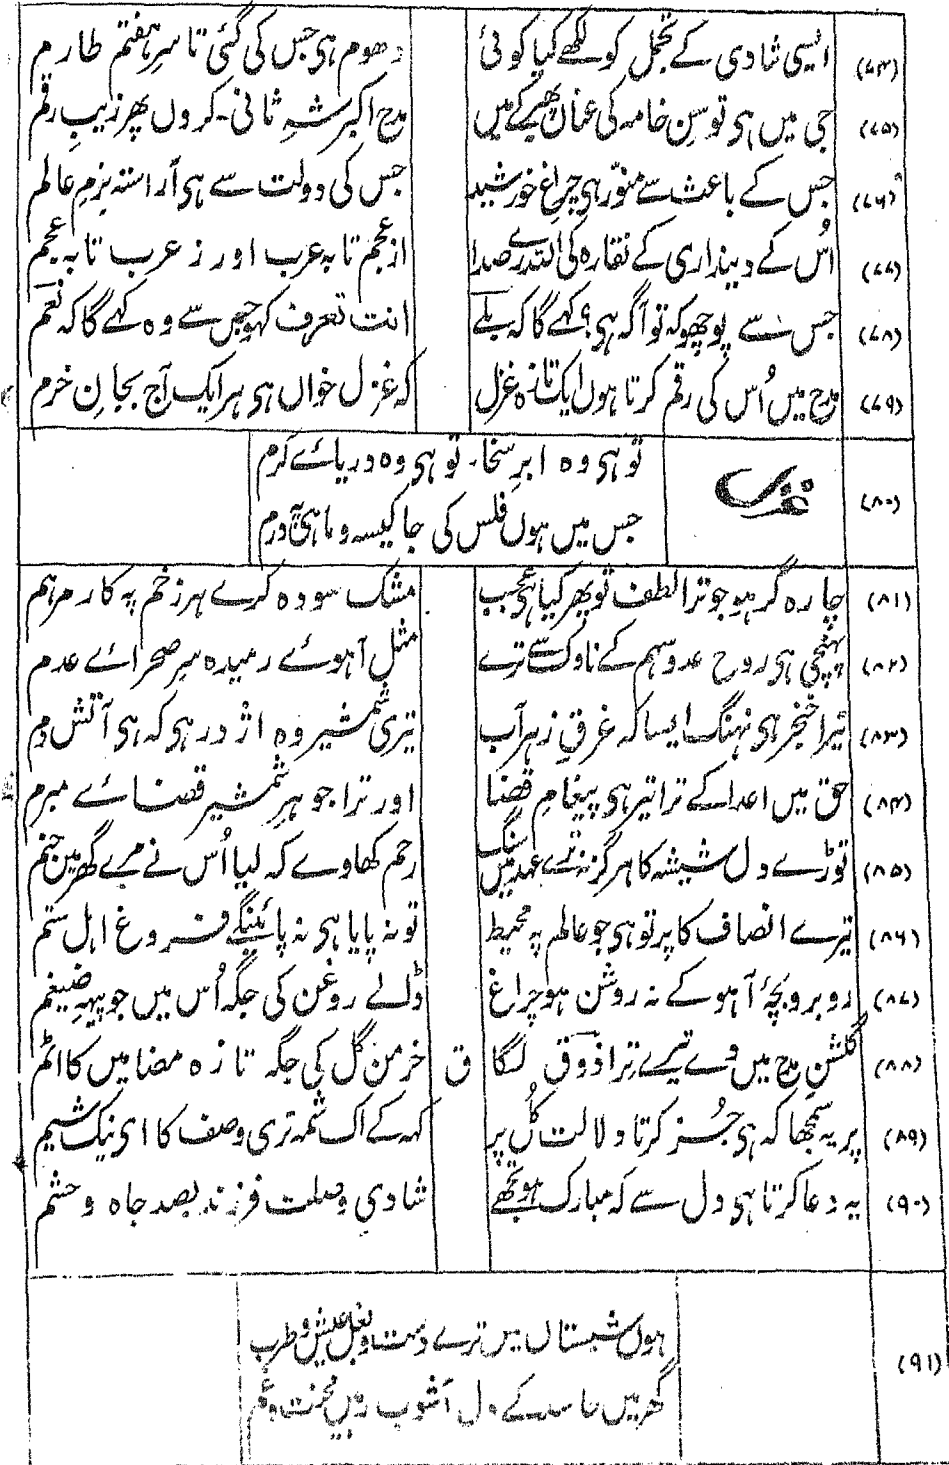 (۷۴) ایسی شادی کے تجمل کو لکھے کیا کوئی دھوم ہی جس کی گئی تا سرِ ہفتم طارم
(۷۵) جی میں ہی توسنِ خامہ کی عنان پھیر کے میں مدح اکبر شہِ ثانی۔ کروں پھر زیبِ رقم
(۷۶) جس کے باعث سے منوّر ہی چراغِ خورشید جس کی دولت سے ہی آراستہ بزمِ عالم
(۷۷) اُس کے دینداری کے نقارہ کی اللہ رے صدا از عجم تا بہ عرب اور ز عرب تا بہ عجم
(۷۸) جس سے پوچھو کہ تو آگہ ہی؟ کہے گا کہ بلے انت تعرف کہو جس سے وہ کہے گا کہ نعم
(۷۹) مدح میں اُس کی رقم کرتا ہوں ایک تازہ غزل کہ غزل خواں ہی ہر ایک آج بجانِ خرم
(۸۰) غزل
تو ہی وہ ابرِ سخا۔ تو ہی وہ دریائے کرم
جس میں ہوں فلس کی جا کیسہ و ماہی درم
(۸۱) چارہ گر ہو جو ترا لطف تو پھر کیا ہی عجب مشک سودہ کرے ہر زخم پہ کار مرہم
(۸۲) پہنچی ہی روح عدو سہم کے ناوک سے ترے مثل آہوئے رمیدہ سرِ صحرائے عدم
(۸۳) تیرا خنجر ہی نہنگ ایسا کہ غرقِ زہرآب تیری شمشیر وہ اژدر ہی کہ ہی آتش دم
(۸۴) حق میں اعدا کے ترا تیر ہی پیغامِ قضا اور ترا جوہرِ شمشیر قضائے مبرم
(۸۵) توڑے دل شیشہ کا ہرگز نہ ترے عہد میں سنگ رحم کھاوے کہ لیا اُس نے مرے گھر میں جنم
(۸۶) تیرے انصاف کا پرتو ہی جو عالم پہ محیط تو نہ پایا ہی نہ پائینگے فروغ اہل ستم
(۸۷) روبرو بچۂ آہو کے نہ روشن ہو چراغ ڈلے روغن کی جگہ اُس میں جو پیہِ ضیغم
(۸۸) گلشنِ مدح میں تیرے ترا ذوق لگا ق خرمن گل کی جگہ تازہ مضامیں کا اٹم
(۸۹) پر یہ سمجھا کہ ہی جُز کرتا دلالت کُل پر کہہ کے اک شمہ تری وصف کا ای نیک شیم
(۹۰) یہ دعا کرتا ہی دل سے کہ مبارک ہو تجھے شادیِ وصلت فرزند بصد جاہ و حشم
(۹۱) ہوں شبستاں میں ترے دست و بغل عیش و طرب
گھر میں حاسد کے دل آشوب رہیں محنت و غم